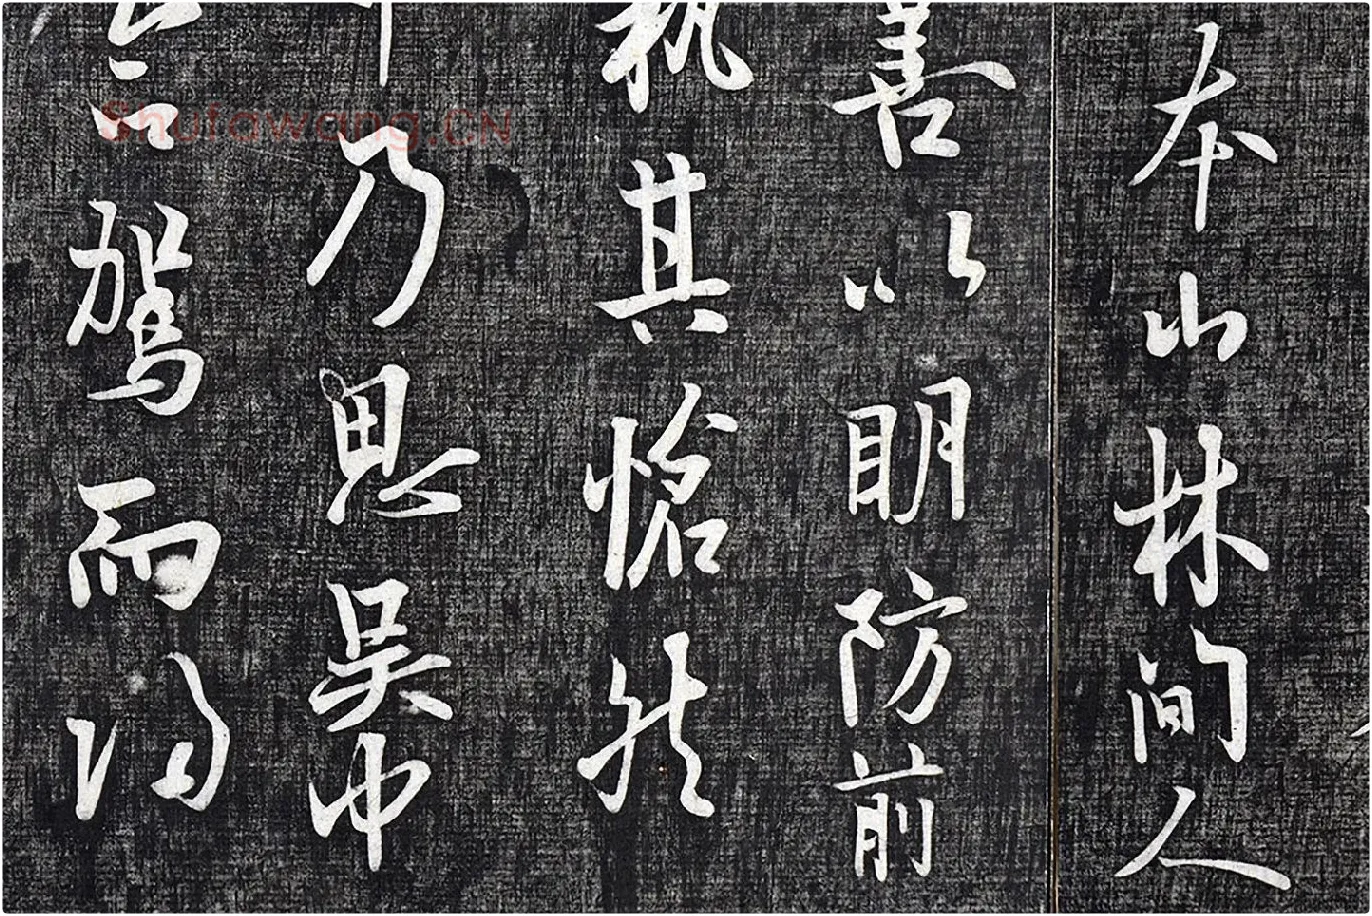 本山林間人
善以明防前
執其愴然
乃思吳中
命駕而歸
Shufawang.CN